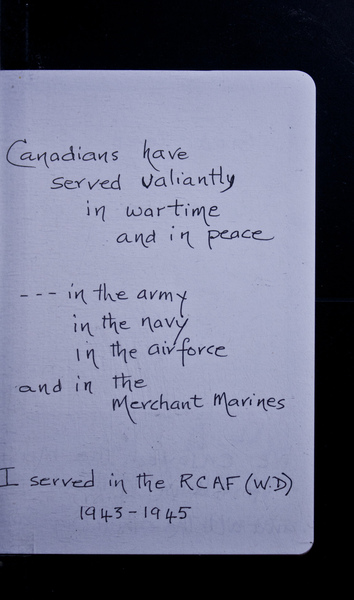 Canadians have
served valiantly
in wartime
and in peace
--- in the army
in the navy
in the airforce
and in the
Merchant Marines
I served in the RCAF (W.D)
1943-1945